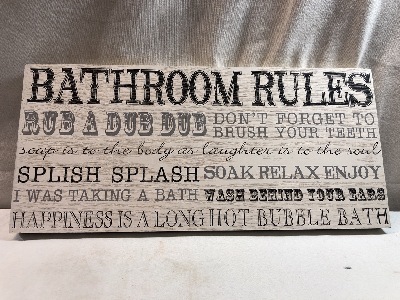 BATHROOM RULES
RUB A DUB DUB DON'T FORGET TO BRUSH YOUR TEETH
soap is to the body as laughter is to the soul
SPLISH SPLASH SOAK RELAX ENJOY
I WAS TAKING A BATH WASH BEHIND YOUR EARS
HAPPINESS IS A LONG HOT BUBBLE BATH